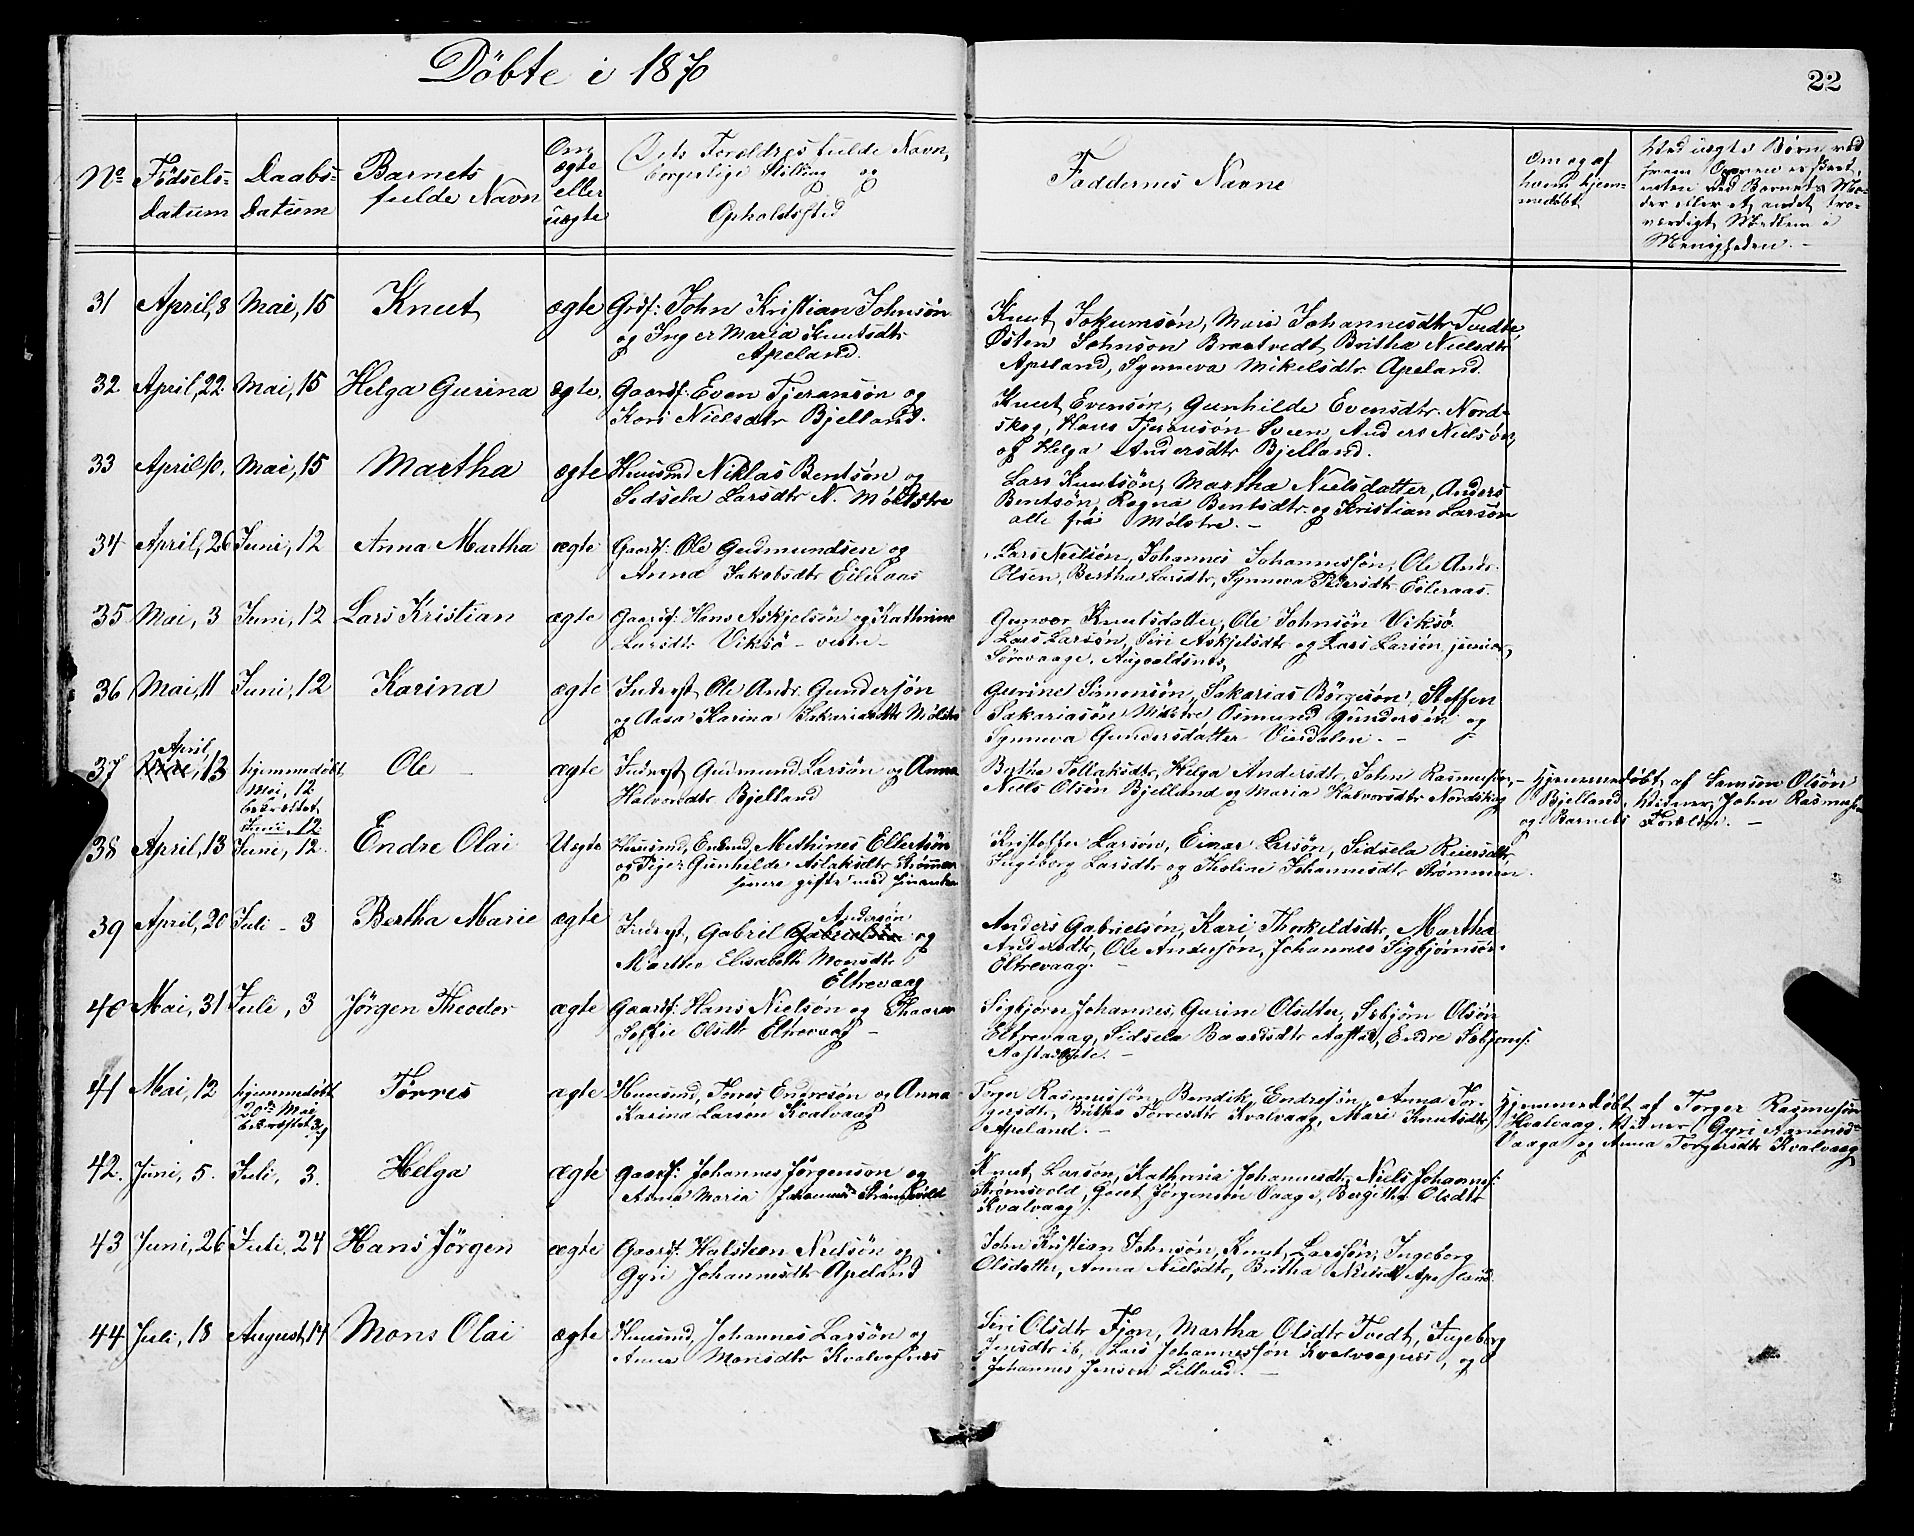 Döbte i 1870
22
No
Födsels-
Datum
Daabs-
Datum
Barnets
fulde Navn
Om
ægte
eller
uægte
Dets Foreldres fulde Navn,
borgerlige Stilling og
Opholdssted
Faddernes Navne
Om og af
hvem hjem-
medöbt
Ved uægte Börn ved
hvem
enten ved Barnets Mo-
der eller et andet tro-
værdigt Medlem i
Menigheden. -
31 April, 8 Mai, 15 Knut ægte Grdf: John Kristian Johnsön
og Inger Maria Knutsdtr
Apeland.
Knut Jokumsön, Mari Johannesdtr
Østen Johnson Brattvedt, Britha Nielsdtr
Apeland, Synneva Mikelsdtr Apeland.
32 April, 22 Mai, 15 Helga Gurina ægte. Gaardf: Even Tjeransön og
Kari Nielsdtr Bjelland.
Knut Evensön, Gunhilde Evensdtr. Nord-
skog, Hans Tjeransön Sveen, Anders Nielsön,
og Helga Andersdtr Bjelland.
33 April, 10. Mai, 15 Martha ægte Huusmd Niklas Bentsön og
Sidsela Larsdtr N. Mölstre
Lars Knutsön, Martha Nielsdatter, Anders
Bentsön, Ragna Bentsdtr. og Kristian Larsön
alle fra Mölstre. -
34 April, 26 Juni, 12 Anna Martha ægte Gaardf: Ole Gudmundsen og
Anna Jakobsdtr Eileraas
Lars Neelsön, Johannes Johannessön, Ole Andr.
Olsen, Bertha Larsdtr, Synneva Pedersdtr Eileraas.
35 Mai, 3 Juni, 12 Lars Kristian ægte Gaardf: Hans Askjelsön og Kathrine
Larsdtr Viksö - vestre -
Gunvor Knutsdatter, Ole Johnsön Viksö
Lars Larsön, Siri Askjelsdtr og Lars Larsön junior,
Sörevaage, Augvaldsnes,
36 Mai, 11 Juni, 12 Karina ægte Inderst, Ole Andr. Gundersön
og Aasa Karina Sakariasdtr Mölstre
Gurine Simonsön, Sakarias Börgesön, Steffen
Sakariasön Mölstre, Osmund Gundersön og
Synneva Gundersdatter Visdalen. -
37 April, 13 hjemmedöbt Ole - ægte Inderst, Gudmund Larsön og Anna
Mai, 12
bekræftet
Juni, 12
Halvorsdtr Bjelland
Bertha Tollaksdtr, Helga Andersdtr, John Rasmusön,
Niels Olsön Bjelland og Maria Halvorsdtr Nordskog
Hjemmedöbt af Samson Olsön
Bjelland, Vidner, John Rasmusön
og Barnets Foreldre. -
38 April, 13 Juni, 12. Endre Olai Uegte Huusmd, Enkemd, Methines Ellertsön
og Pige Gunhilde Aslaksdtr Strömmen
senere gifte med hinanden
Kristoffer Larsön, Einar Larsön, Sidsela Reiersdtr,
Ingeborg Larsdtr og Tholine Johannesdtr Strömmen.
39 April, 20 Juli - 3 Bertha Marie ægte Inderst, Gabril Gabrielsön Andersön og
Martha Elisabeth Monsdtr
Eltrevaag
Anders Gabrielsön, Kari Thorkeldsdtr, Martha
Andersdtr, Ole Andersön, Johannes Sigbjörnsön
Eltrevaag. -
40 Mai, 31 Juli, 3 Jörgen Theodor ægte Gaardf: Hans Nielsön og
Soffie Olsdtr Eltrevaag -
Sigbjörn Johannes, Gurine Olsdtr, Sebjörn Olsön
Eltrevaag, Sidsela Baardsdtr Aafstad, Endre Sebjörns:
41 Mai, 12 hjemmedöbt Törres ægte Huusmd, Tönes Endresön og Anna
20de Mai
bekræftet 3/7
Karina Larsön Kvalvaag
Torger Rasmussön, Bendik Endresön, Anna Tor-
gersdtr, Britha Torresdtr Kvalvaag, Mari Knutsdtr
Apeland. -
Hjemmedöbt af Torger Rasmusön
Kvalvaag. Vidner, Gyri
Vaaga og Anna Torgersdtr Kvalvaag
42. Juni, 5. Juli, 3. Helga ægte Gaardf: Johannes Jörgenson og
Anna Maria Johannes Strömsvold
Knut Larsön, Kathrina Johannesdtr, Niels Johannes:
Strömsvold, Gaut Jörgensen Vaage, Bergitha Olsdtr
Kvalvaag.
43 Juni, 26 Juli, 24 Hans Jörgen ægte Gaardf: Halsteen Nielsön og
Gyri Johannesdtr Apeland
John Kristian Johnsön, Knut Larssön, Ingeborg
Olsdatter, Anna Nielsdtr, Britha Nielsdt Apeland.
44 Juli, 18 August, 14 Mons Olai ægte Huusmd, Johannes Larsön og
Anna Monsdtr Kvalvagnes
Siri Olsdtr Fjon, Martha Olsdtr Tvedt, Ingeborg
Jensdtr ib, Lars Johannessön Kvalvaagnes, og
Johannes Jensen Lillesund. -